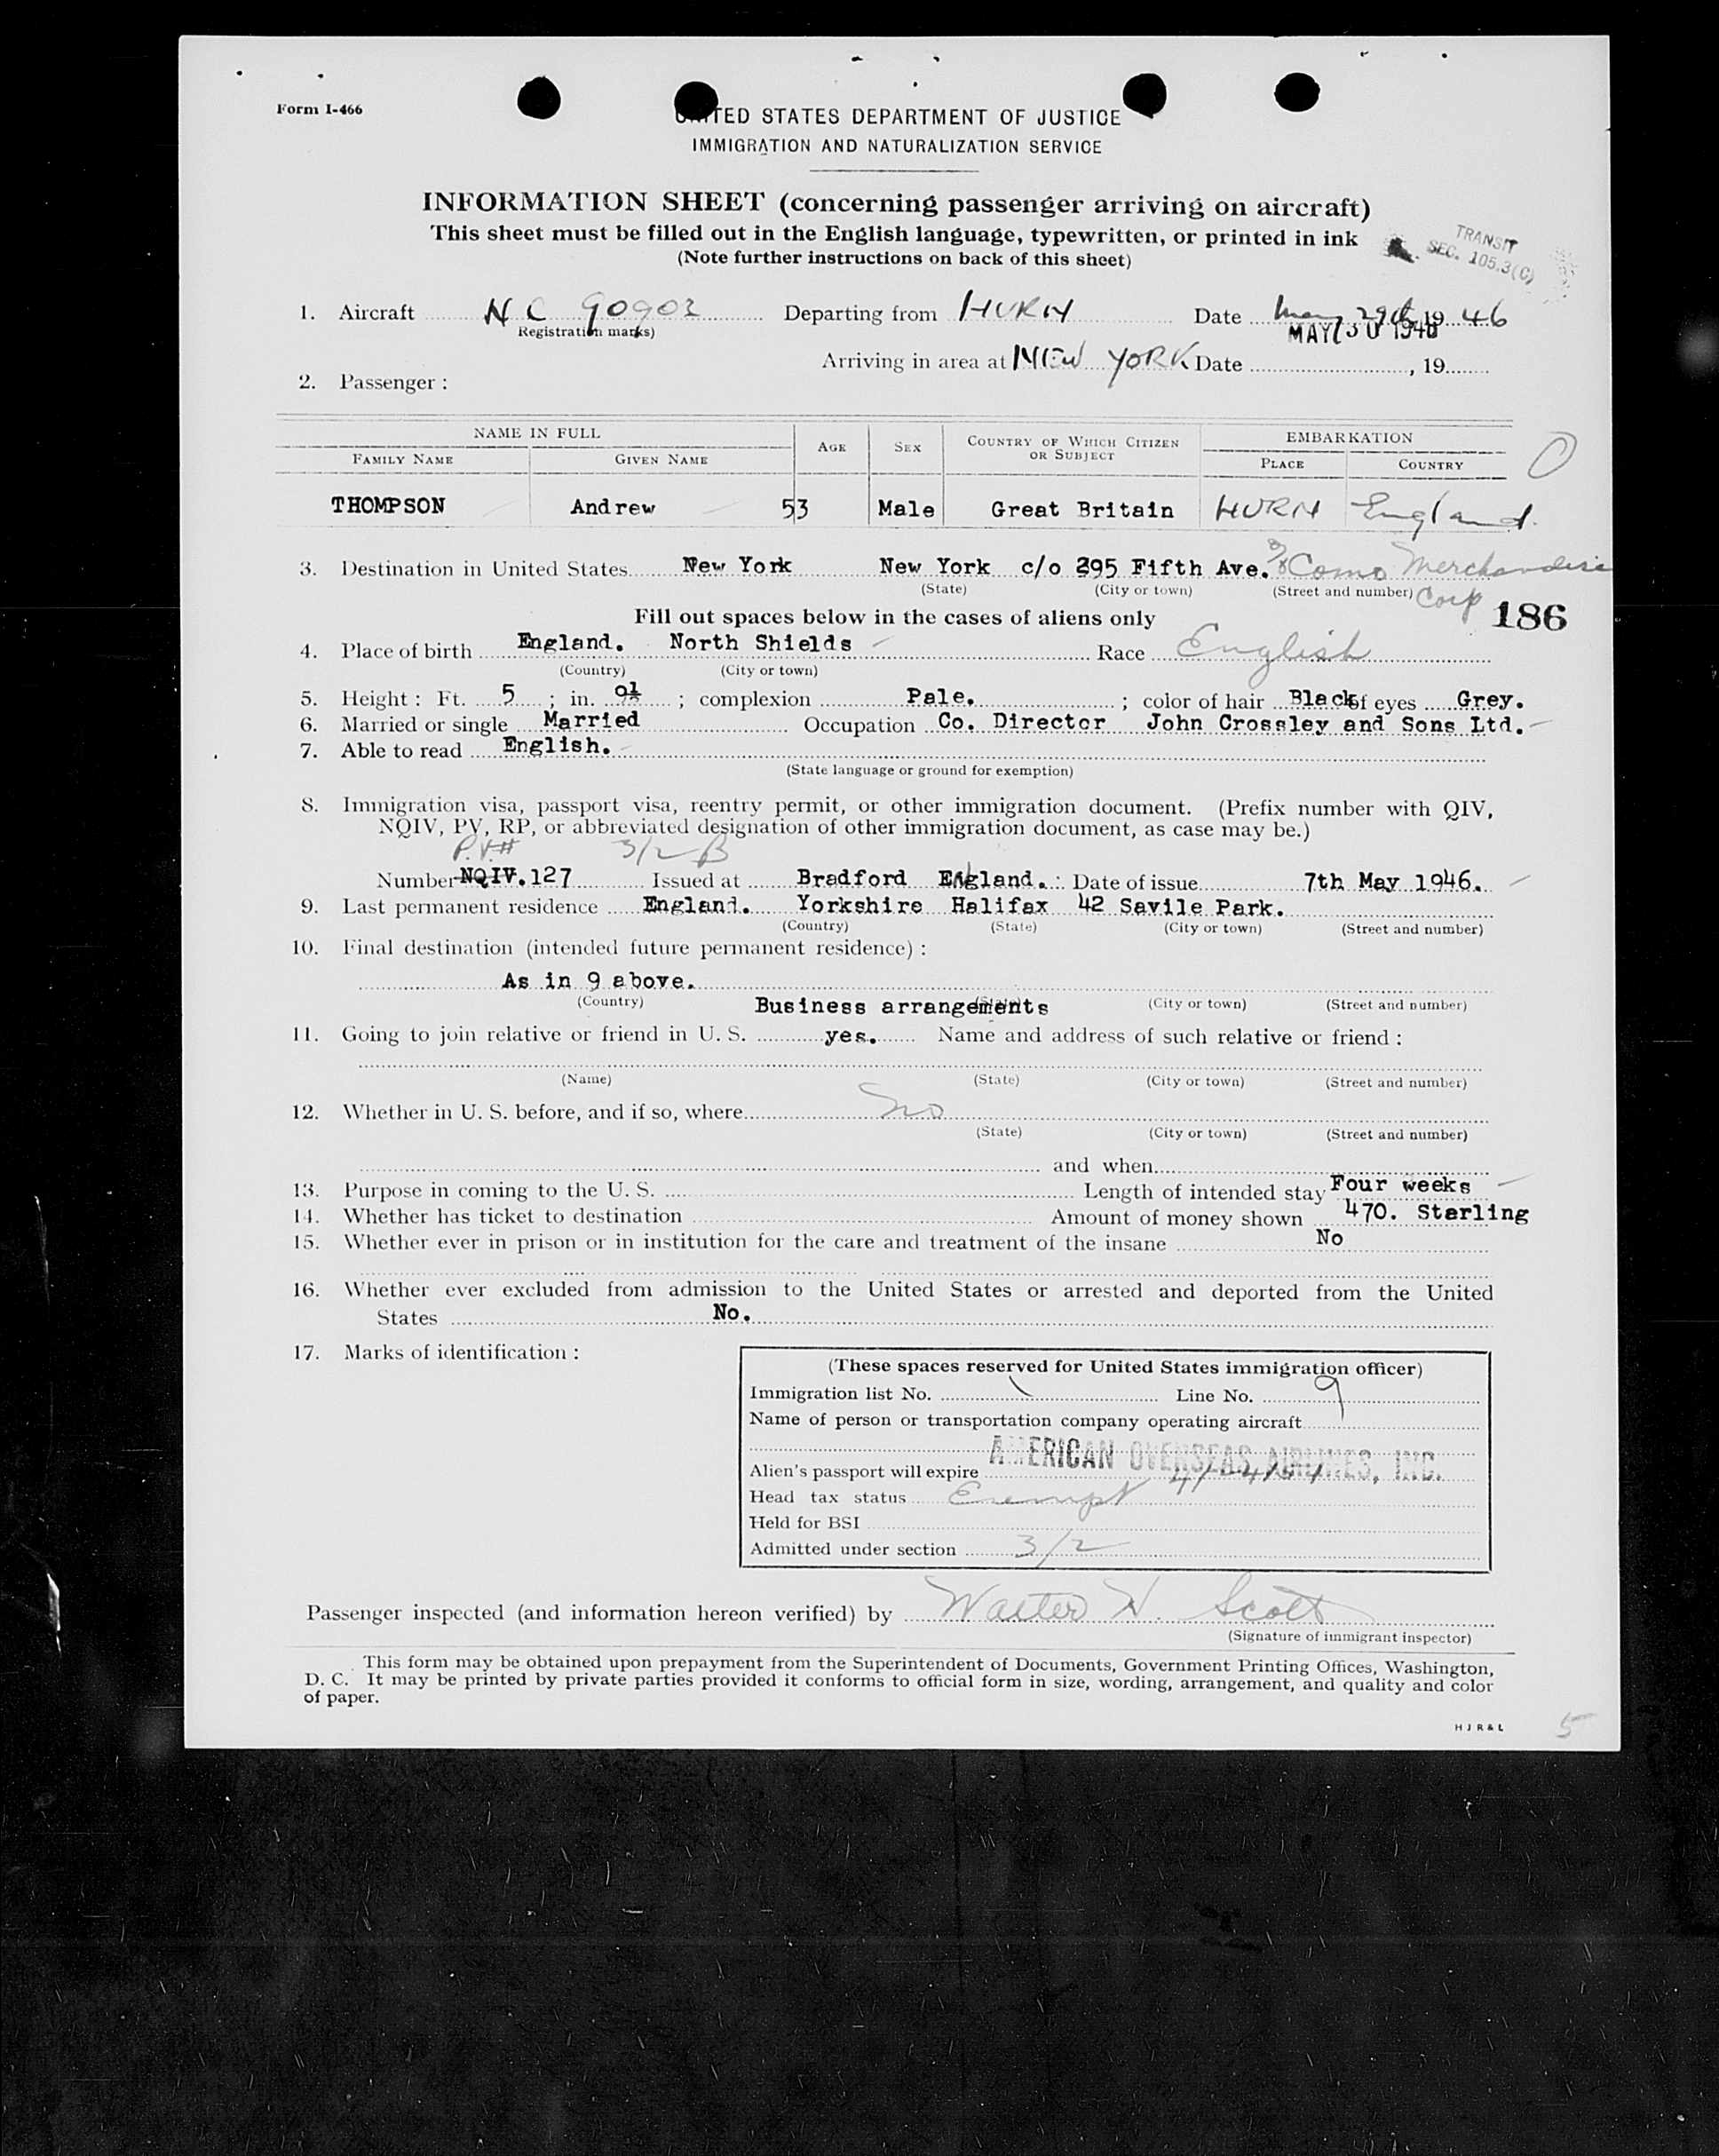 Form I-466
UNITED STATES DEPARTMENT OF JUSTICE
IMMIGRATION AND NATURALIZATION SERVICE
INFORMATION SHEET (concerning passenger arriving on aircraft)
This sheet must be filled out in the English language, typewritten, or printed in ink
(Note further instructions on back of this sheet)
TRANSIT
SEC. 105.3(C)
1. Aircraft NC 90902 Departing from HURN Date May 29th 19 46
(Registration marks)
MAY 30 1946
Arriving in area at NEW YORK Date , 19
2. Passenger :
NAME IN FULL AGE SEX COUNTRY OF WHICH CITIZEN OR SUBJECT EMBARKATION
FAMILY NAME GIVEN NAME PLACE COUNTRY
THOMPSON Andrew 53 Male Great Britain HURN England.
3. Destination in United States New York New York c/o 295 Fifth Ave. % Como Merchandise
(State) (City or town) (Street and number) Corp
186
Fill out spaces below in the cases of aliens only
4. Place of birth England. North Shields Race English
(Country) (City or town)
5. Height : Ft. 5 ; in. 9½ ; complexion Pale. ; color of hair Black of eyes Grey.
6. Married or single Married Occupation Co. Director John Crossley and Sons Ltd.
7. Able to read English.
(State language or ground for exemption)
8. Immigration visa, passport visa, reentry permit, or other immigration document. (Prefix number with QIV,
NQIV, PV, RP, or abbreviated designation of other immigration document, as case may be.)
P.V.# 3/2 B
Number NQIV.127 Issued at Bradford England. Date of issue 7th May 1946.
9. Last permanent residence England. Yorkshire Halifax 42 Savile Park.
(Country) (State) (City or town) (Street and number)
10. Final destination (intended future permanent residence) :
As in 9 above.
(Country) (State) (City or town) (Street and number)
Business arrangements
11. Going to join relative or friend in U. S. yes. Name and address of such relative or friend :
(Name) (State) (City or town) (Street and number)
12. Whether in U. S. before, and if so, where No
(State) (City or town) (Street and number)
and when
13. Purpose in coming to the U. S. Length of intended stay Four weeks
14. Whether has ticket to destination Amount of money shown 470. Sterling
15. Whether ever in prison or in institution for the care and treatment of the insane No
16. Whether ever excluded from admission to the United States or arrested and deported from the United
States No.
17. Marks of identification :
(These spaces reserved for United States immigration officer)
Immigration list No. Line No. 9
Name of person or transportation company operating aircraft
AMERICAN OVERSEAS AIRLINES, INC.
Alien's passport will expire
Head tax status Exempt
Held for BSI
Admitted under section 3/2
Passenger inspected (and information hereon verified) by Walter H. Scott
(Signature of immigrant inspector)
This form may be obtained upon prepayment from the Superintendent of Documents, Government Printing Offices, Washington,
D. C. It may be printed by private parties provided it conforms to official form in size, wording, arrangement, and quality and color
of paper.
H J R & L
5